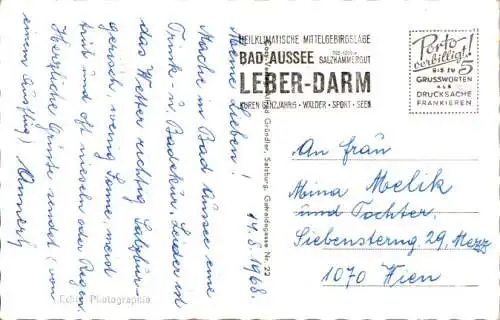 Meine Lieben!
Mache in Bad Aussee eine
Trink- u Badekur. Leider ist
das Wetter richtig Salzbur-
gerisch, wenig Sonne, meist
trüb und oft nieseln oder Regen.
Herzliche Grüße sendet (von
einem Ausflug)
14.8.1968.
Gründler, Salzburg, Getreidegasse Nr. 22
Echte Photographie
HEILKLIMATISCHE MITTELGEBIRGSLAGE
BAD AUSSEE
SALZKAMMERGUT
LEBER-DARM
KUREN GANZJÄHRIG - WÄLDER - SPORT - SEEN
Porto-
verbilligt!
BIS ZU 5
GRUSSWORTEN
ALS
DRUCKSACHE
FRANKIEREN
An Frau
Mina Melik
und Tochter
Siebensterng 29, Mezz
1070 Wien